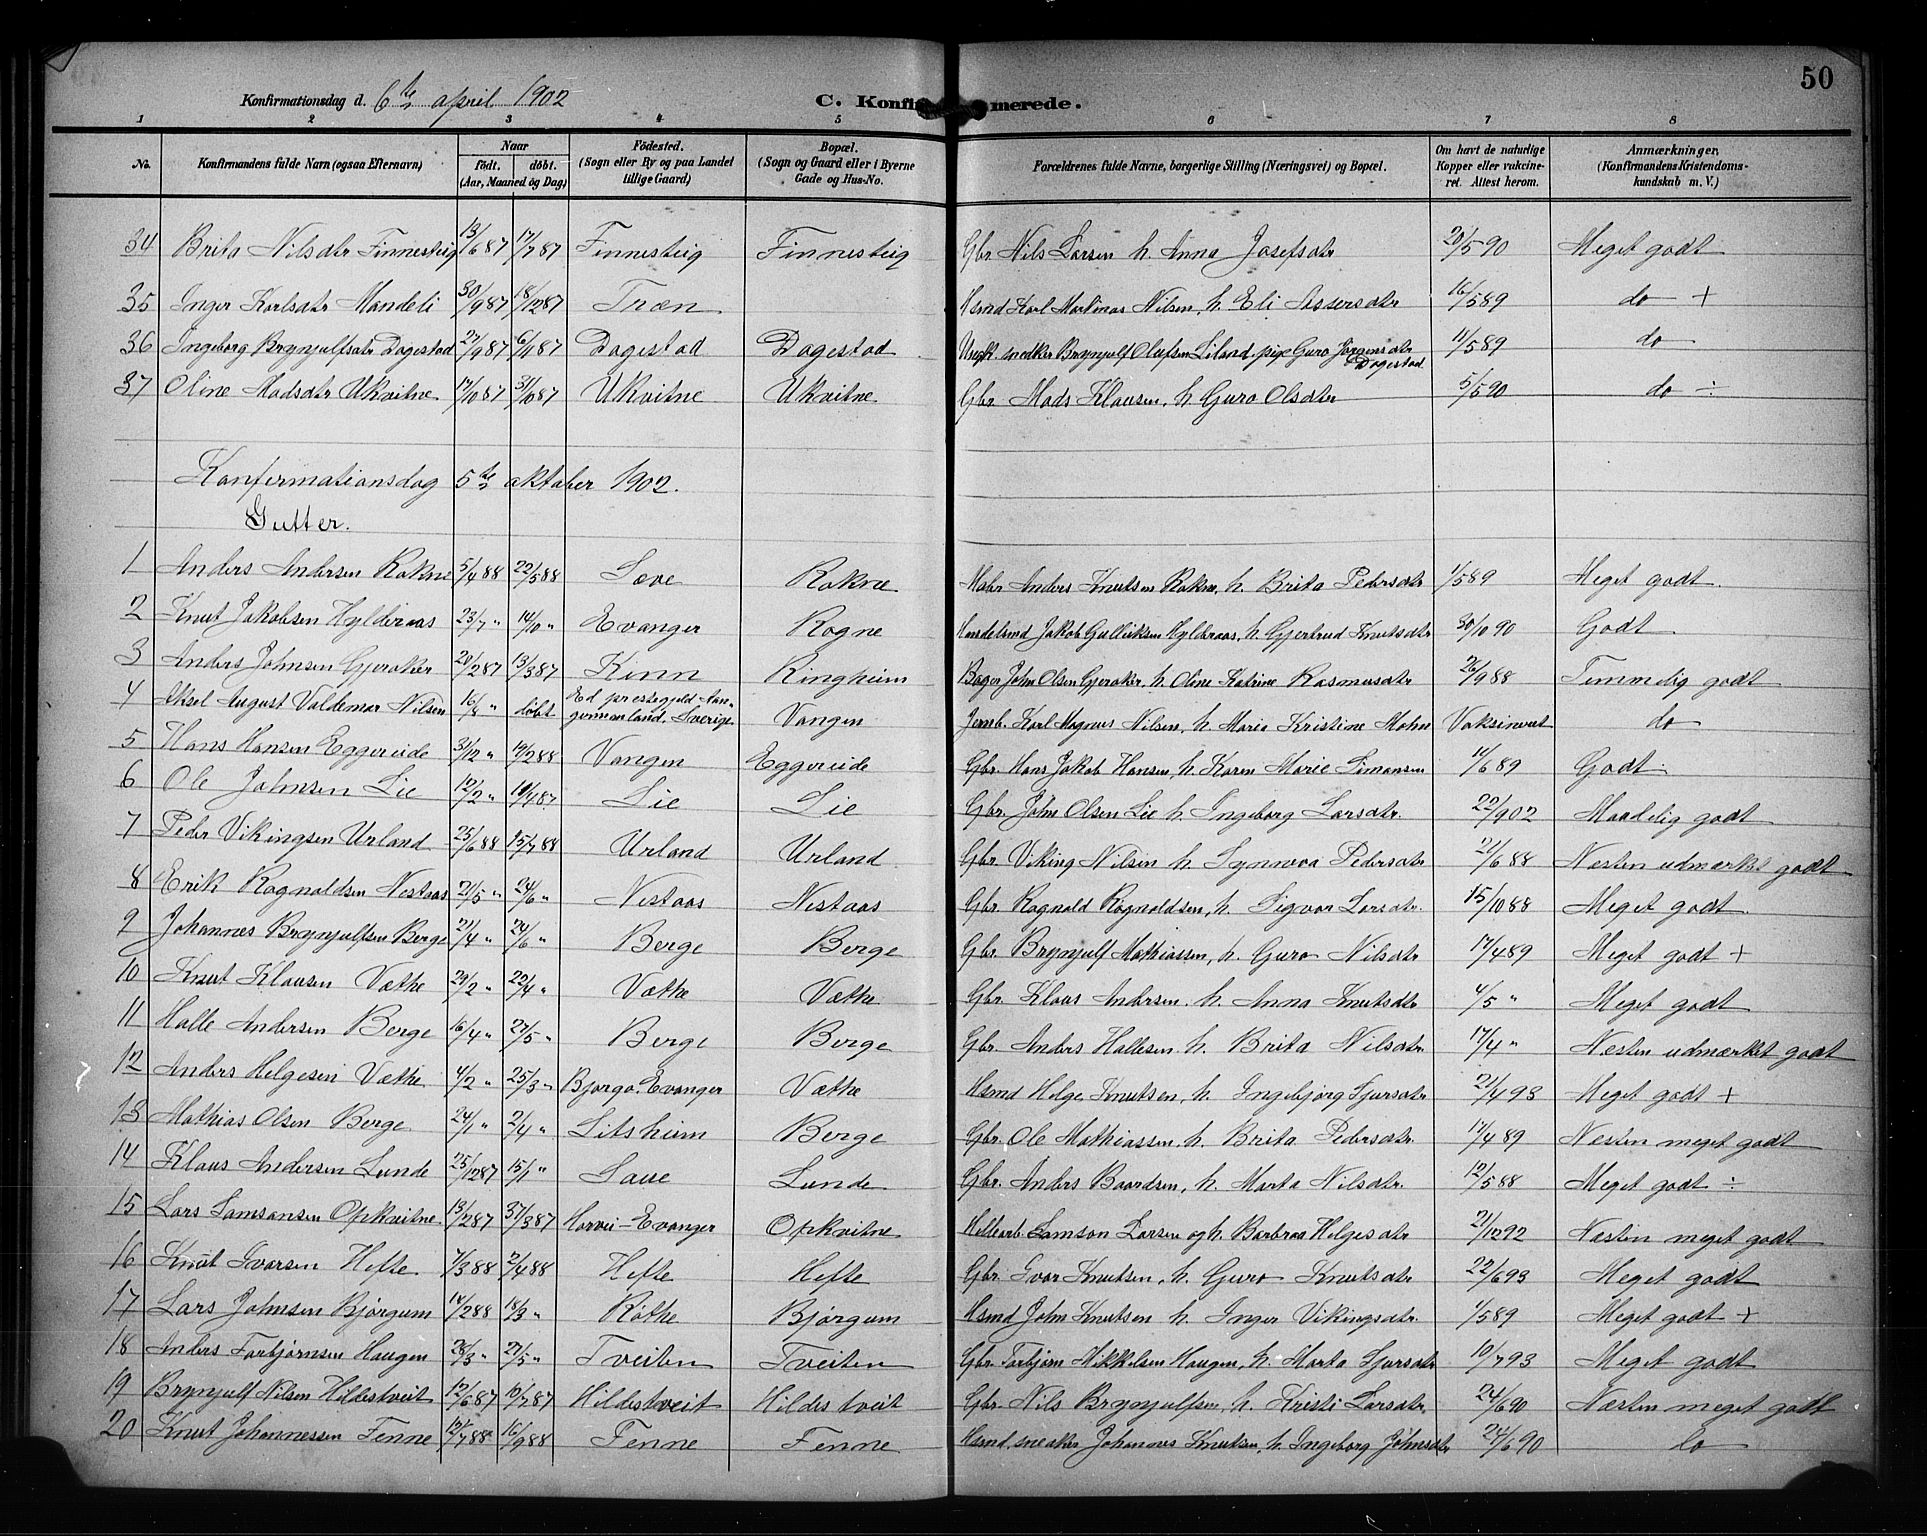 50
Konfirmationsdag d. 6te april 1902 C. Konfirmerede.
1 2 3 4 5 6 7 8
No. Konfirmandens fulde Navn (ogsaa Efternavn) Naar født. døbt. (Aar, Maaned og Dag) Fødested. (Sogn eller By og paa Landet tillige Gaard) Bopæl. (Sogn og Gaard eller i Byerne Gade og Hus-No. Forældrenes fulde Navne, borgerlige Stilling (Næringsvei) og Bopæl. Om havt de naturlige Kopper eller vakcineret. Attest herom. Anmærkninger, (Konfirmandens Kristendomskundskab m. V.)
34 Brita Nilsdtr Finnesteig 13/687 17/787 Finnesteig Finnesteig Gbr. Nils Larsen h. Anna Josefsdtr 20/590 Meget godt
35 Inger Karlsdtr Mandeli 30/987 18/1287 Træn Hsmd Karl Martinus Nilsen, h. Eli Assersdtr 16/589 do +
36 Ingeborg Brynjulfsdtr Dagestad 27/987 6/1187 Dagestad Dagestad Ungk. snedker Brynjulf Olufsen Liland, pige Guro Jørgensdtr Dagestad 11/589 do
37 Oline Madsdtr Ukvitne 17/1087 31/1087 Ukvitne Ukvitne Gbr. Mads Klausen, h. Guro Olsdtr 5/590 do ÷
Konfirmationsdag 5te oktober 1902.
Gutter.
1 Anders Andersen Rokne 5/488 22/588 Sæve Rokne Mabr Anders Knutsen Rokne, h. Brita Pedersdtr 1/589 Meget godt.
2 Knut Jakobsen Hylderaas 23/7 " 14/10 " Evanger Rogne Handelsmd Jakob Gulliksen Hylbraas, h. Gjertrud Knutsdtr 30/1090 Godt
3 Anders Johnsen Gjeraker 20/287 13/387 Kinn Ringheim Bager John Olsen Gjeraker, h. Oline Katrine Rasmusdtr 26/988 Temmelig godt
4 Aksel August Valdemar Nilsen 16/8 " døbt Ed præstegjeld Aangermanland. Sverige Vangen Jernb. Karl Magnus Nilsen, h. Maria Kristine Mohn Vaksineret do
5 Hans Hansen Eggereide 31/12 " 14/288 Vangen Eggereide Gbr. Hans Jakob Hansen, h. Karen Marie Simonsen 14/689 Godt.
6 Ole Johnsen Lie 12/2 " 11/487 Lie Lie Gbr. John Olsen Lie h. Ingeborg Larsdtr. 22/902 Maadelig godt
7 Peder Vikingsen Urland 25/688 15/788 Urland Urland Gbr. Viking Nilsen h. Synneva Pedersdtr 21/688 Næsten udmærket godt
8 Erik Ragnaldsen Nestaas 21/5 " 24/6 " Nestaas Nestaas Gbr. Ragnald Ragnaldsen, h. Sigvor Larsdtr. 15/1088 Meget godt.
9 Johannes Brynjulfsen Berge 21/4 " 24/6 " Berge Berge Gbr. Brynjulf Mathiassen, h. Guro Nilsdtr 17/489 Meget godt +
10 Knut Klausen Væthe 29/2 " 22/4 " Væthe Væthe Gbr. Klaus Andersen. h. Anna Knutsdtr 4/5 " Meget godt
11 Halle Andersen Berge 16/4 " 27/5 " Berge Berge Gbr. Anders Hallesen h. Brita Nilsdtr. 17/4 " Næsten udmærket godt
12 Anders Helgesen Væthe 4/2 " 25/3 " Bjørgo. Evanger Væthe Hsmd Helge Knutsen, h. Ingebjørg Sjursdtr 21/493 Meget godt +
13 Mathias Olsen Berge 24/1 " 2/4 " Litsheim Berge Gbr. Ole Mathiassen, h. Brita Pedersdtr. 17/489 Næsten meget godt
14 Klaus Andersen Lunde 25/1287 15/1 " Saue Lunde Gbr. Anders Baardsen, h. Marta Nilsdtr. 12/588 Meget godt ÷
15 Lars Samsonsen Opkvitne 13/287 Horvei-Evanger Opkvitne Samson Larsen og h. Barbraa Helgesdtr 21/1292 Næsten meget godt
16 Knut Ivarsen Hefte 7/388 2/488 Hefte Hefte Gbr. Ivar Knutsen, h. Guro Knutsdtr 22/693 Meget godt
17 Lars Johnsen Bjørgum 14/288 18/3 " Røthe Bjørgum Hsmd John Knutsen h. Inger Vikingsdtr. 1/589 Meget godt +
18 Anders Torbjørnsen Haugen 28/3 " 27/5 " Tveiten Tveiten Gbr. Torbjørn Mikkelsen Haugen, h. Marta Sjursdtr 10/793 Meget godt
19 Brynjulf Nilsen Hildestveit 12/687 10/787 Hildestveit Hildestveit Gbr. Nils Brynjulfsen, h. Kristi Larsdtr. 24/690 Næsten meget godt
20 Knut Johannessen Fenne 12/788 16/988 Fenne Fenne Hsmd, snedker Johannes Knutsen, h. Ingeborg Johnsdtr 24/690 do